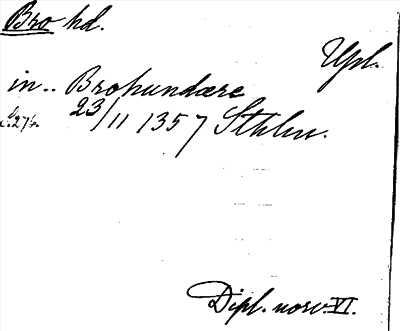 Bro hd.
Upl.
in.. Brohundære
s. 276. 23/11 1357 Sthlm.
Dipl. norv. VI.